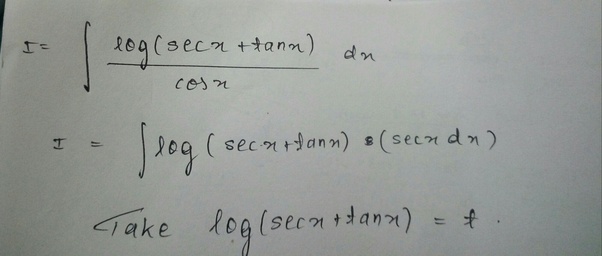 I = ∫ log(secx + tanx) / cosx dx
I = ∫ log(secx + tanx) • (secx dx)
Take log(secx + tanx) = t.